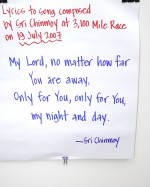 Lyrics to song composed
by Sri Chinmoy at 3,100 Mile Race
on 19 July 2007
My Lord, no matter how far
You are away,
Only for You, only for You,
my night and day.
—Sri Chinmoy